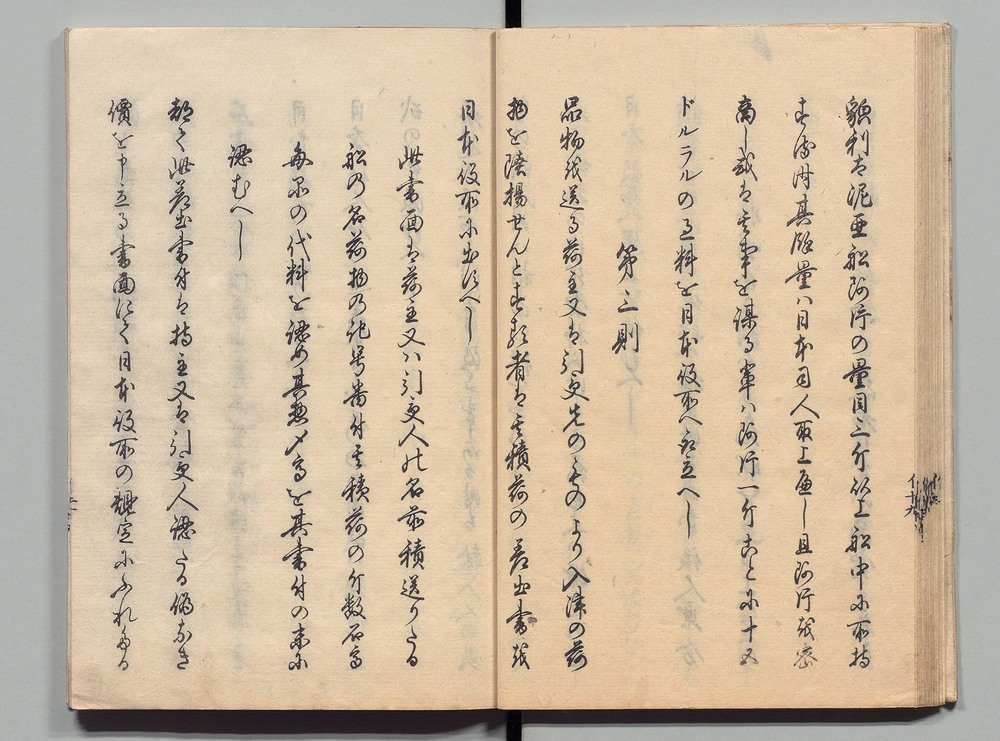 貌利太泥亜船阿片の量目三斤以上船中に所持
する時其餘量ハ日本司人取上へし且阿片を密
商し或は其事を謀る輩ハ阿片一斤ことに十五
ドルラルの過料を日本役所へ取立へし
第三則
品物を送る荷主又は引受先のものより入津の荷
物を陸揚せんとする者は其積荷の差出書を
日本役所に出すへし
此書面は荷主又ハ引受人の名前積送りたる
船の名荷物の記号番付其積荷の斤数石高
毎品の代料を認め其惣〆高を其書付の末に
認むへし
都て此差出書付は持主又は引受人認たる偽なき
價を申立る書面にて日本役所の規定にふれたる